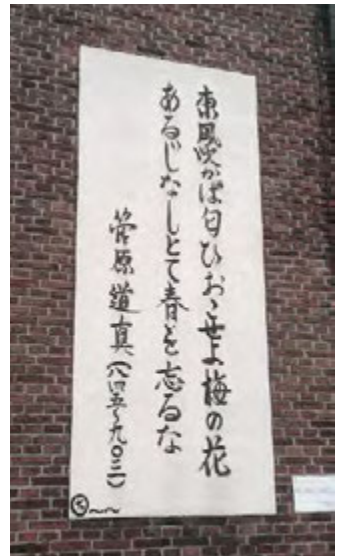 東風吹かば匂ひおこせよ梅の花
あるじなしとて春を忘るな
菅原道真（八四五〜九〇三）